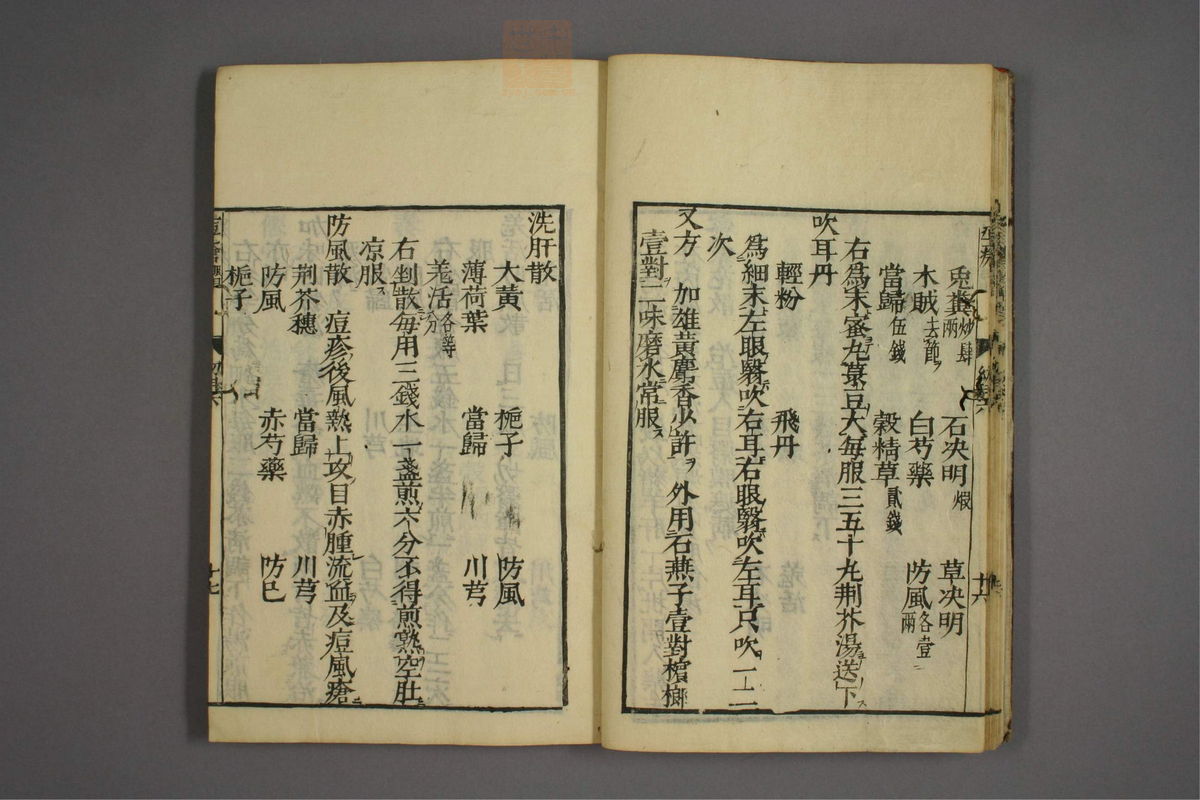 兎糞炒肆兩　石决明煆　草决明
木賊去節　白芍藥　防風各壹兩
當歸伍錢　穀精草貳錢
右爲末蜜丸菉豆大毎服三五十丸荆芥湯送下
吹耳丹
輕粉　飛丹
爲細末左眼翳吹右耳右眼翳吹左耳只吹一二
次
又方　加雄黄麝香少許　外用石燕子壹對檳榔
壹對二味磨水常服
十六
洗肝散
大黄　梔子　防風
薄荷葉　當歸　川芎
羗活各等分
右剉散毎用三錢水一盞煎六分不得煎熟空肚
凉服
防風散　痘疹後風熱上攻目赤腫流血及痘風瘡
荆芥穗　當歸　川芎
防風　赤芍藥　防巳
梔子
十七